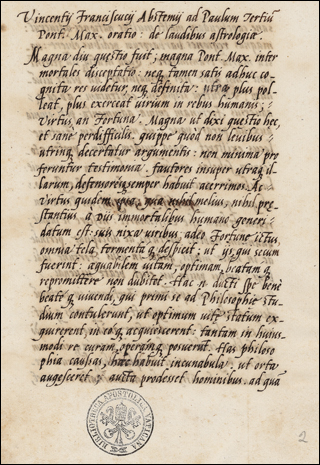 Vincentij Franciscucij Abstemij ad Paulum Tertiũ
Pont. Max. oratio: de laudibus astrologiæ.
Magna diu questio fuit; magna Pont. Max. inter
mortales disceptatio: neq. tamen satis adhuc co-
gnita res uidetur, neq. definita: utra plus pol-
leat, plus exerceat uirium in rebus humanis;
Virtus an Fortuna. Magna ut dixi questio hec,
et sane perdifficilis. quippe quod non leuibus
utrinq. decertatur argumentis: non minima pro
feruntur testimonia. fautores insuper utraq. il-
larum, defensoresq. semper habuit acerrimos. At
Virtus quidem, qua nihil melius, nihil pre-
stantius, a Dijs immortalibus humano generi
datum est: suis nixa uiribus, adeo Fortune ictus,
omnia tela, tormenta q. despicit; ut ijs, qui secum
fuerint: æquabilem uitam, optimam, beatam q.
repromittere non dubitet. Hac n. ducti spe bene
beate q. uiuendi, qui primi se ad Philosophie stu
dium contulerunt, ut optimum uite statum ex-
quirerent, in eo q. acquiescerent: tantam in huius-
modi re curam, operamq. posuerunt. Has philoso
phia causas, hæc habuit incunabula; ut orta
augesceret, & aucta prodesset hominibus. ad quã
BIBLIOTHECA APOSTOLICA VATICANA
2